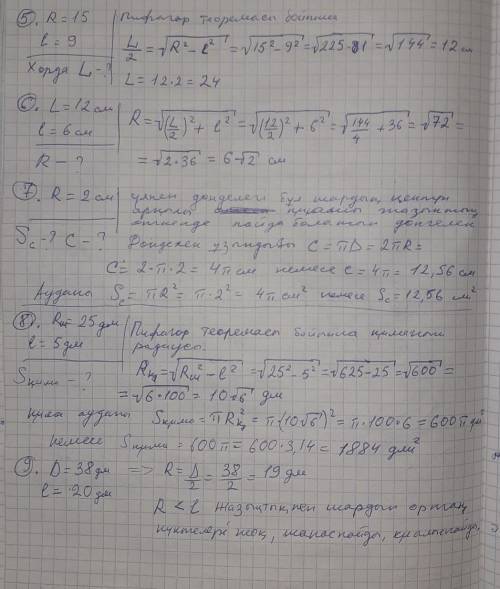 ⑤. R = 15 | Пифагор теоремасы бойынша
l = 9 | L/2 = √(R² - l²) = √(15² - 9²) = √(225 - 81) = √144 = 12 см
Хорда L - ? | L = 12·2 = 24
⑥. L = 12 см | R = √((L/2)² + l²) = √((12/2)² + 6²) = √(144/4 + 36) = √72 =
l = 6 см
R - ? | = √(2·36) = 6√2 см
⑦. R = 2 см | үлкен дөңгелегі бұл шардың центрі
арқылы қимасы жазықтық
Sc - ? C - ? | өткенде пайда болатын дөңгелек
Дөңгелек ұзындығы C = πD = 2πR =
C = 2·π·2 = 4π см немесе C = 4π = 12,56 см
Ауданы Sc = πR² = π·2² = 4π см² немесе Sc = 12,56 см²
⑧. Rш = 25 дм | Пифагор теоремасы бойынша қиманың
l = 5 дм | радиусы.
Sқима - ? | Rқ = √(Rш² - l²) = √(25² - 5²) = √(625 - 25) = √600 =
= √(6·100) = 10√6 дм
қима ауданы Sқима = πRқ² = π·(10√6)² = π·100·6 = 600π дм²
немесе Sқима = 600π = 600·3,14 = 1884 дм²
⑨. D = 38 дм => R = D/2 = 38/2 = 19 дм
l = 20 дм
R < l Жазықтықпен шардың ортақ
нүктелері жоқ, жанаспайды, қиылыспайды.